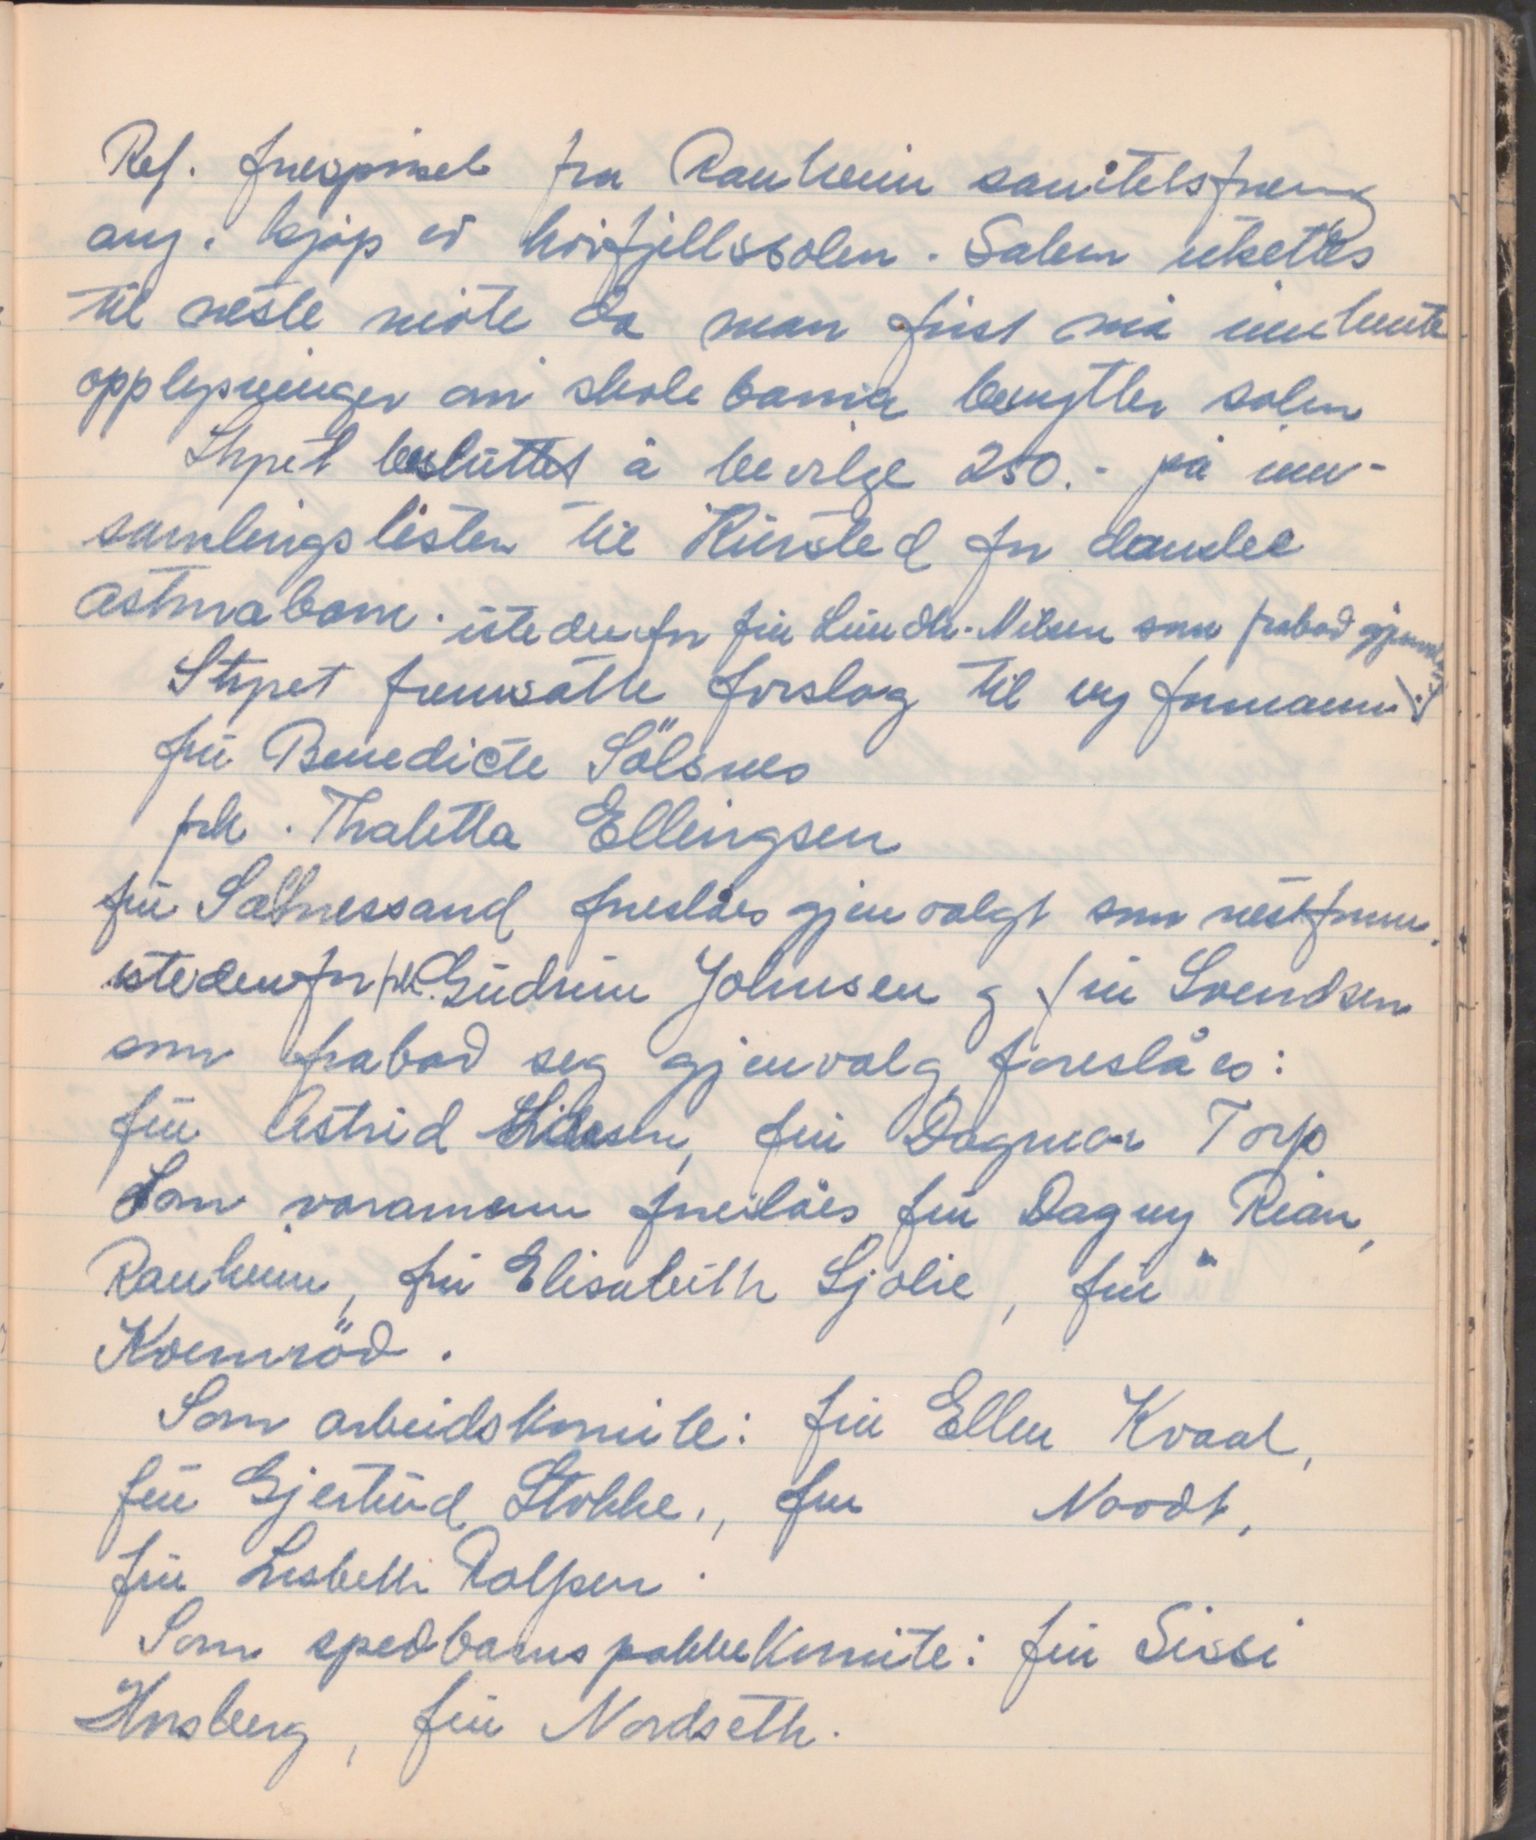 Ref. forespørsel fra Ranheim sanitetsforening
ang. kjøp av høifjellssolen. Saken utsettes
til neste møte da man først må innhente
opplysninger om skole barna benytter solen
Styret besluttet å bevilge 250.- på inn-
samlingslisten til Kursted for danske
astmabarn.
istedenfor fru Lindh-Nilsen som frabad gjenvalg
Styret fremsatte forslag til ny formann:
fru Benedicte Sölsnes
frk. Thaletta Ellingsen
fru Sætnessand foreslåes gjenvalgt som nestform.
istedenfor frk. Gudrun Johnsen og fru Svendsen
som frabad seg gjenvalg foreslåes:
fru Astrid, fru Dagmar Torp
Som varamenn foreslåes fru Dagny Rian,
Ranheim, fru Elisabeth Sjölie, fru "
Kvernröd.
Som arbeidskomite: fru Ellen Kvaal,
fru Gjertrud Stokke, fru Noodt,
fru Lisbeth Rolfsen.
Som spedbarnspakkekomite: fru Sissi
Horsberg, fru Nordseth.